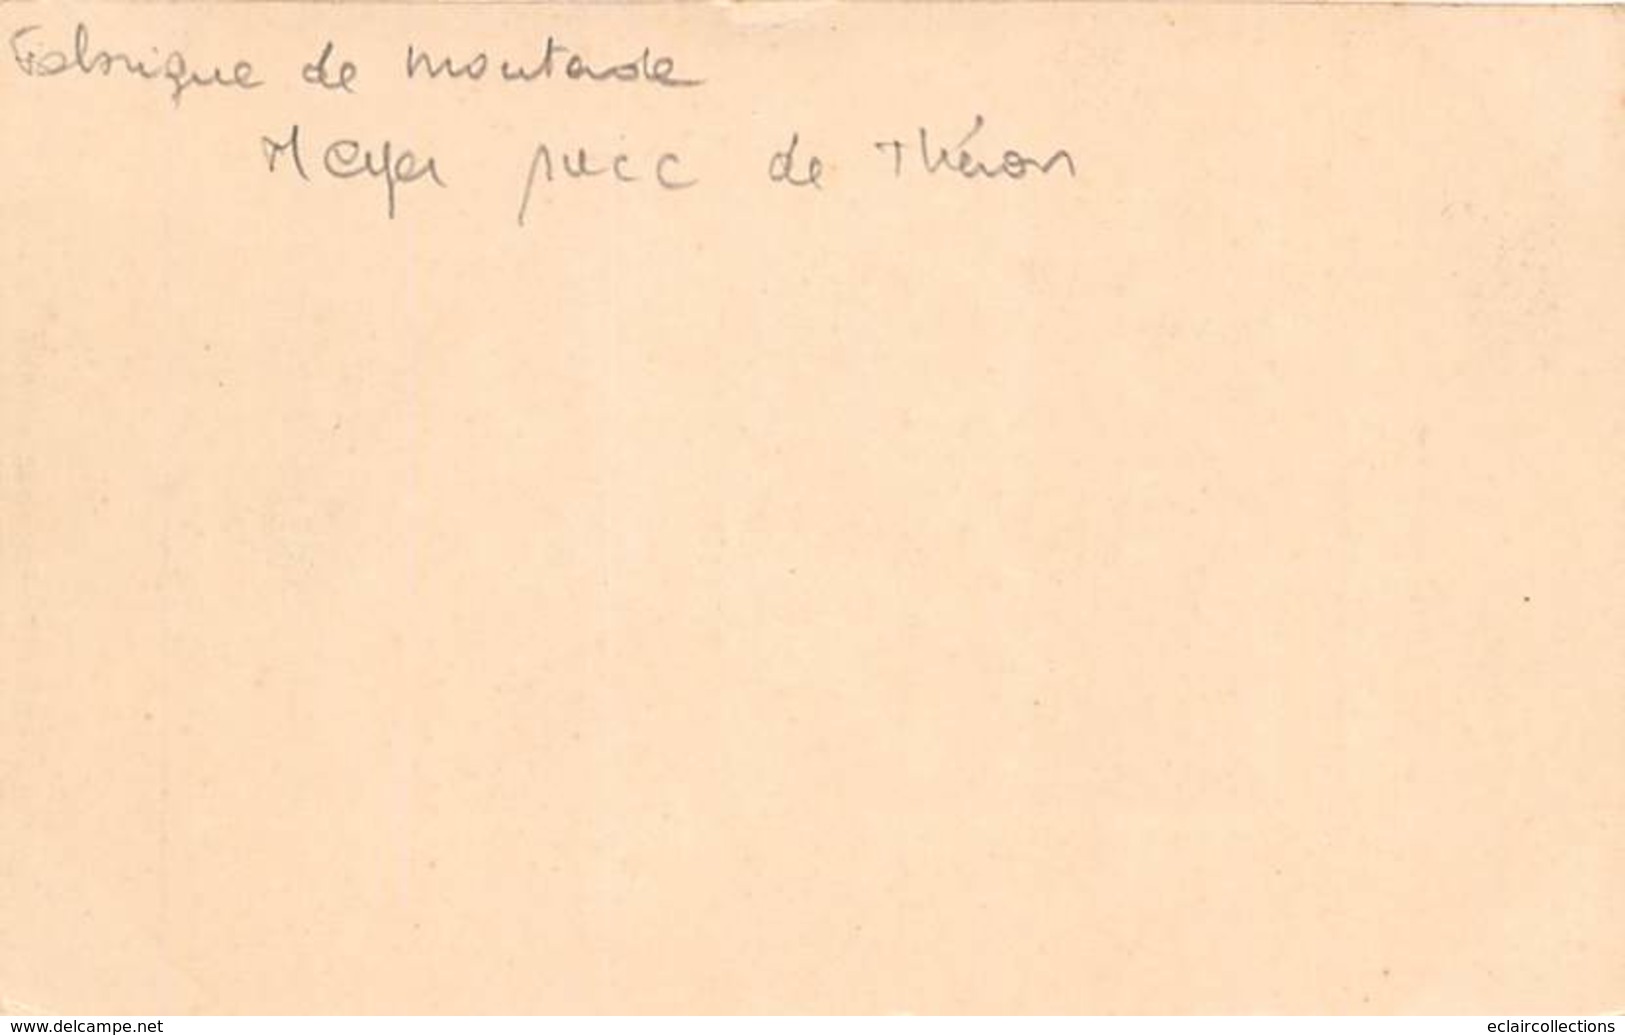 Fabrique de moutarde
Meyer succ de Théron
www.delcampe.net
eclaircollections